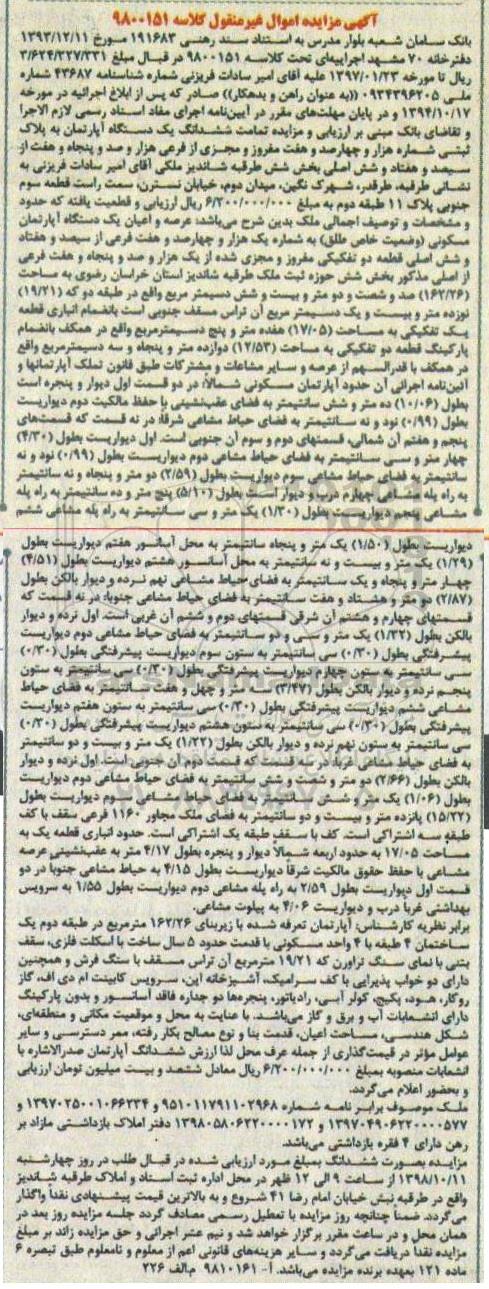 آگهی مزایده اموال غیرمنقول کلاسه ۹۸۰۰۱۵۱
بانک سامان شعبه بلوار مدرس به استناد سند رهنی ۱۹۱۶۸۳ مورخ ۱۳۹۳/۱۲/۱۱
دفترخانه ۷۰ مشهد اجراییه‌ای تحت کلاسه ۹۸۰۰۱۵۱ در قبال مبلغ ۳/۶۲۴/۳۲۷/۳۳۱
ریال تا مورخه ۱۳۹۷/۰۱/۲۳ علیه آقای امیر سادات فریزنی شماره شناسنامه ۴۳۶۸۷ شماره
ملی ۰۹۳۴۳۹۶۲۰۵ ((به عنوان راهن و بدهکار)) صادر که پس از ابلاغ اجرائیه در مورخه
۱۳۹۴/۱۰/۱۷ و در پایان مهلت‌های مقرر در آیین‌نامه اجرای مفاد اسناد رسمی لازم الاجرا
و تقاضای بانک مبنی بر ارزیابی و مزایده تمامت ششدانگ یک دستگاه آپارتمان به پلاک
ثبتی شماره هزار و چهارصد و هفت مفروز و مجزی از فرعی هزار و صد و پنجاه و هفت از
سیصد و هفتاد و شش اصلی بخش شش طرقبه شاندیز ملکی آقای امیر سادات فریزنی به
نشانی طرقبه، طرقدر، شهرک نگین، میدان دوم، خیابان نسترن، سمت راست قطعه سوم
جنوبی پلاک ۱۱ طبقه دوم به مبلغ ۶/۲۰۰/۰۰۰/۰۰۰ ریال ارزیابی و قطعیت یافته که حدود
و مشخصات و توصیف اجمالی ملک بدین شرح می‌باشد: عرصه و اعیان یک دستگاه آپارتمان
مسکونی (وضعیت خاص طلق) به شماره یک هزار و چهارصد و هفت فرعی از سیصد و هفتاد
و شش اصلی قطعه دو تفکیکی مفروز و مجزی شده از یک هزار و صد و پنجاه و هفت فرعی
از اصلی مذکور بخش شش حوزه ثبت ملک طرقبه شاندیز استان خراسان رضوی به مساحت
(۱۶۲/۲۶) صد و شصت و دو متر و بیست و شش دسیمتر مربع واقع در طبقه دو که (۱۹/۲۱)
نوزده متر و بیست و یک دسیمتر مربع آن تراس مسقف جنوبی است بانضمام انباری قطعه
یک تفکیکی به مساحت (۱۷/۰۵) هفده متر و پنج دسیمترمربع واقع در همکف بانضمام
پارکینگ قطعه دو تفکیکی به مساحت (۱۲/۵۳) دوازده متر و پنجاه و سه دسیمترمربع واقع
در همکف با قدرالسهم از عرصه و سایر مشاعات و مشترکات طبق قانون تملک آپارتمانها و
آئین‌نامه اجرائی آن حدود آپارتمان مسکونی شمالاً: در دو قسمت اول دیوار و پنجره است
بطول (۱۰/۰۶) ده متر و شش سانتیمتر به فضای عقب‌نشینی با حفظ مالکیت دوم دیواریست
بطول (۰/۹۹) نود و نه سانتیمتر به فضای حیاط مشاعی شرقاً: در نه قسمت که قسمت‌های
پنجم و هفتم آن شمالی، قسمتهای دوم و سوم آن جنوبی است. اول دیواریست بطول (۴/۳۰)
چهار متر و سی سانتیمتر به فضای حیاط مشاعی دوم دیواریست بطول (۰/۹۹) نود و نه
سانتیمتر به فضای حیاط مشاعی سوم دیواریست بطول (۲/۵۹) دو متر و پنجاه و نه سانتیمتر
به راه پله مشاعی چهارم درب و دیوار است بطول (۵/۱۰) پنج متر و ده سانتیمتر به راه پله
مشاعی پنجم دیواریست بطول (۱/۳۰) یک متر و سی سانتیمتر به راه پله مشاعی ششم
دیواریست بطول (۱/۵۰) یک متر و پنجاه سانتیمتر به محل آسانسور هفتم دیواریست بطول
(۱/۲۹) یک متر و بیست و نه سانتیمتر به محل آسانسور هشتم دیواریست بطول (۴/۵۱)
چهار متر و پنجاه و یک سانتیمتر به فضای حیاط مشاعی نهم نرده و دیوار بالکن بطول
(۲/۸۷) دو متر و هشتاد و هفت سانتیمتر به فضای حیاط مشاعی جنوبا: در نه قسمت که
قسمتهای چهارم و هشتم آن شرقی قسمتهای دوم و ششم آن غربی است. اول نرده و دیوار
بالکن بطول (۱/۳۲) یک متر و سی و دو سانتیمتر به فضای حیاط مشاعی دوم دیواریست
پیشرفتگی بطول (۰/۳۰) سی سانتیمتر به ستون سوم دیواریست پیشرفتگی بطول (۰/۳۰)
سی سانتیمتر به ستون چهارم دیواریست پیشرفتگی بطول (۰/۳۰) سی سانتیمتر به ستون
پنجم نرده و دیوار بالکن بطول (۳/۴۷) سه متر و چهل و هفت سانتیمتر به فضای حیاط
مشاعی ششم دیواریست پیشرفتگی بطول (۰/۳۰) سی سانتیمتر به ستون هفتم دیواریست
پیشرفتگی بطول (۰/۳۰) سی سانتیمتر به ستون هشتم دیواریست پیشرفتگی بطول (۰/۳۰)
سی سانتیمتر به ستون نهم نرده و دیوار بالکن بطول (۱/۲۲) یک متر و بیست و دو سانتیمتر
به فضای حیاط مشاعی غربا: در سه قسمت که قسمت دوم آن جنوبی است. اول نرده و دیوار
بالکن بطول (۲/۶۶) دو متر و شصت و شش سانتیمتر به فضای حیاط مشاعی دوم دیواریست
بطول (۱/۰۶) یک متر و شش سانتیمتر به فضای حیاط مشاعی سوم دیواریست بطول
(۱۵/۲۲) پانزده متر و بیست و دو سانتیمتر به فضای ملک مجاور ۱۱۶۰ فرعی سقف با کف
طبقه سه اشتراکی است. کف با سقف طبقه یک اشتراکی است. حدود انباری قطعه یک به
مساحت ۱۷/۰۵ به حدود اربعه شمالاً دیوار و پنجره بطول ۴/۱۷ متر به عقب‌نشینی عرصه
مشاعی با حفظ حقوق مالکیت شرقاً دیواریست بطول ۴/۱۵ به حیاط مشاعی جنوباً در دو
قسمت اول دیواریست بطول ۲/۵۹ به راه پله مشاعی دوم دیواریست بطول ۱/۵۵ به سرویس
بهداشتی غرباً درب و دیواریست ۴/۰۶ به پیلوت مشاعی.
برابر نظریه کارشناس: آپارتمان تعرفه شده با زیربنای ۱۶۲/۲۶ مترمربع در طبقه دوم یک
ساختمان ۴ طبقه با ۴ واحد مسکونی با قدمت حدود ۵ سال ساخت با اسکلت فلزی، سقف
بتنی با نمای سنگ تراورتن که ۱۹/۲۱ مترمربع آن تراس مسقف با سنگ فرش و همچنین
دارای دو خواب پذیرایی با کف سرامیک، آشپزخانه اپن، سرویس کابینت ام دی اف، گاز
روکار، هود، پکیج، کولر آبی، رادیاتور، پنجره‌ها دو جداره فاقد آسانسور و بدون پارکینگ
دارای انشعابات آب و برق و گاز می‌باشد. با عنایت به محل و موقعیت مکانی و منطقه‌ای،
شکل هندسی، مساحت اعیان، قدمت بنا و نوع مصالح بکار رفته، ممر دسترسی و سایر
عوامل مؤثر در قیمت‌گذاری از جمله عرف محل لذا ارزش ششدانگ آپارتمان صدرالاشاره با
انشعابات منصوبه بمبلغ ۶/۲۰۰/۰۰۰/۰۰۰ ریال معادل ششصد و بیست میلیون تومان ارزیابی
و بحضور اعلام می‌گردد.
ملک موصوف برابر نامه شماره ۹۵۱۰۱۱۷۹۱۱۰۲۹۶۸ و ۱۳۹۷۰۲۵۰۰۱۰۶۶۲۳۴ و
۱۳۹۷۰۴۹۰۶۲۲۰۰۰۰۵۷۷ و ۱۳۹۸۰۵۸۰۶۲۲۰۰۰۰۱۷۲ دفتر املاک بازداشتی مازاد بر
رهن دارای ۴ فقره بازداشتی می‌باشد.
مزایده بصورت ششدانگ بمبلغ مورد ارزیابی شده در قبال طلب در روز چهارشنبه
۱۳۹۸/۱۰/۱۱ از ساعت ۹ الی ۱۲ ظهر در محل اداره ثبت اسناد و املاک طرقبه شاندیز
واقع در طرقبه نبش خیابان امام رضا ۴۱ شروع و به بالاترین قیمت پیشنهادی نقداً واگذار
می‌گردد. ضمناً چنانچه روز مزایده با تعطیل رسمی مصادف گردد جلسه مزایده روز بعد در
همان محل و در ساعت مقرر برگزار خواهد شد و نیم عشر اجرائی و حق مزایده زائد بر مبلغ
مزایده نقداً دریافت می‌گردد و سایر هزینه‌های قانونی اعم از معلوم و نامعلوم طبق تبصره ۶
ماده ۱۲۱ بعهده برنده مزایده می‌باشد. آ- ۹۸۱۰۱۶۱ م.الف ۲۲۶